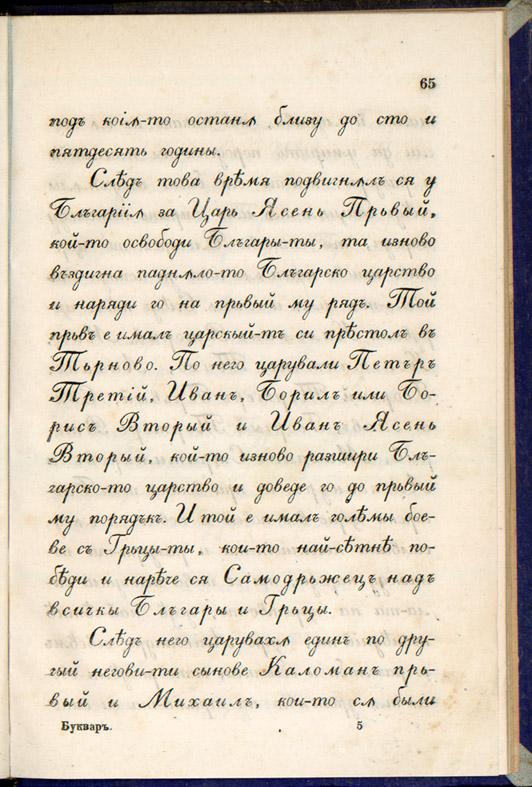 65
подъ коіѭ-то останѫ близу до сто и
пятдесять годины.
Слѣдъ това врѣмя подвигнѫлъ ся у
Блъгаріѭ за Царь Ясень Прьвый,
кой-то освободи Блъгары-ты, та изново
въздигна паднѫло-то Блъгарско царство
и нареди го на прьвый му рядъ. Той
прьвъ е ималъ царскый-тъ си прѣстолъ въ
Тьрново. По него царували Петъръ
Третій, Иванъ, Борилъ или Бо-
рисъ Вторый и Иванъ Ясень
Вторый, кой-то изново разшири Блъ-
гарско-то царство и доведе го до прьвый
му порядъкъ. И той е ималъ голѣмы бое-
ве съ Грьцы-ты, кои-то най-сѣтнѣ по-
бѣди и нарѣче ся Самодрьжецъ надъ
всичкы Блъгары и Грьцы.
Слѣдъ него царувахѫ единъ по дру-
гый негови-ти сынове Каломанъ прь-
вый и Михаилъ, кои-то сѫ были
Букваръ. 5